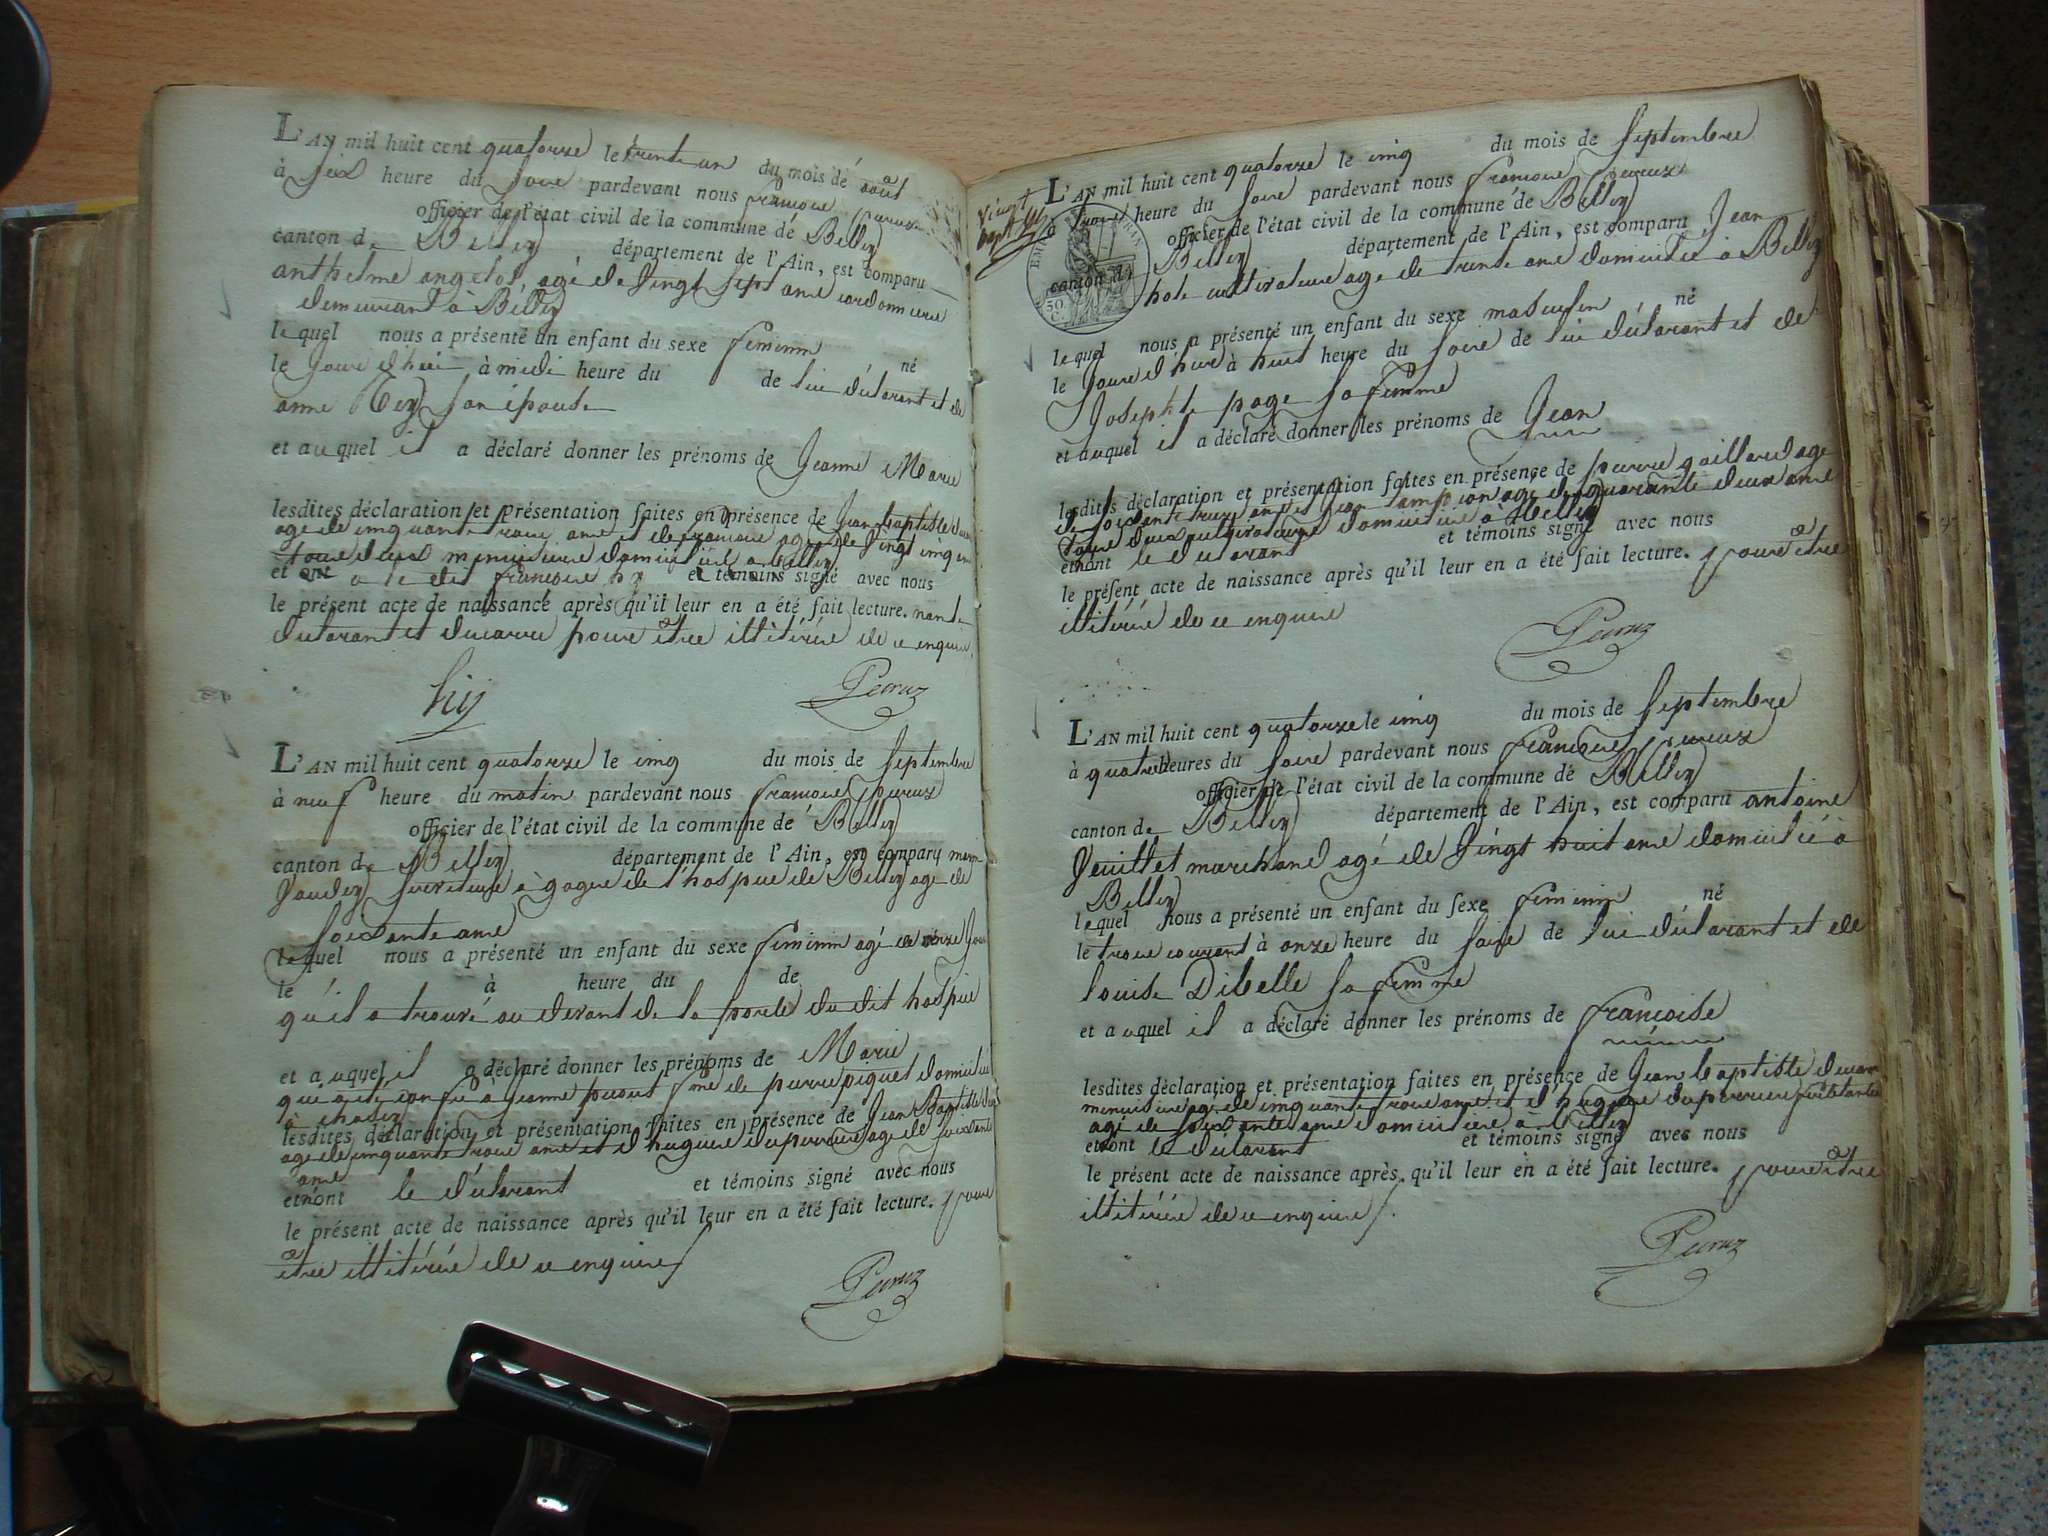 L'AN mil huit cent quatorze le trente un du mois de août
à six heure du soire pardevant nous françoise peruux
officier de l'état civil de la commune de Belley
canton de Belley département de l'Ain, est comparu
anthelme angelot, agé de vingt sept ans cordonniere
demeurant à Belley
lequel nous a présenté un enfant du sexe feminin né
le jour d'hui à midi heure du de lui déclarant et de
anne Rey son épouse
et auquel il a déclaré donner les prénoms de Jeanne Marie
lesdites déclaration et présentation faites en présence de Jean baptiste
agé de cinquante trois ans et de françoise agé de vingt cinq ans
tous deux menuisiere domicilié a Belley
et ont le dit françoise et témoins signé avec nous
le présent acte de naissance après qu'il leur en a été fait lecture. nant
déclarant et ducarre pour être illitérée de ce enquis
hij Peruuz
L'AN mil huit cent quatorze le cinq du mois de septembre
à neuf heure du matin pardevant nous françoise peruux
officier de l'état civil de la commune de Belley
canton de Belley département de l'Ain, est comparu
serviteur à gages de l'hospice de Belley agé de
soixante ans
lequel nous a présenté un enfant du sexe feminin agé de
le à heure du de
qu'il a trouvé au devant de la porte du dit hospice
et auquel il a déclaré donner les prénoms de Marie
qui a été confié à Jeanne fme de pierre piquet domicilié
à
lesdites déclaration et présentation faites en présence de Jean Baptiste
agé de cinquante trois ans et d'hugues duperrier agé de soixante
ans
et n'ont le déclarant et témoins signé avec nous
le présent acte de naissance après qu'il leur en a été fait lecture. pour
être illitérée de ce enquis
Peruuz
vingt
sept
L'AN mil huit cent quatorze le cinq du mois de septembre
à heure du soire pardevant nous françoise peruux
officier de l'état civil de la commune de Belley
canton de Belley département de l'Ain, est comparu Jean
hote cultivateur agé de trente ans domicilié à Belley
lequel nous a présenté un enfant du sexe masculin né
le jour d'hier à huit heure du soire de lui déclarant et de
Josephte page sa femme
et auquel il a déclaré donner les prénoms de Jean
lesdites déclaration et présentation faites en présence de pierre gaillard agé
de soixante treize ans et Jean agé de quarante deux ans
tous deux cultivateurs domicilié à Belley
et n'ont le déclarant et témoins signé avec nous
le présent acte de naissance après qu'il leur en a été fait lecture. pour être
illitérée de ce enquis
Peruuz
L'AN mil huit cent quatorze le cinq du mois de septembre
à quatre heures du soire pardevant nous françoise peruux
officier de l'état civil de la commune de Belley
canton de Belley département de l'Ain, est comparu antoine
Jeuillet marchand agé de vingt huit ans domicilié à
Belley
lequel nous a présenté un enfant du sexe feminin né
le trois courant à onze heure du soire de lui déclarant et de
louise Dibelle sa femme
et auquel il a déclaré donner les prénoms de françoise
lesdites déclaration et présentation faites en présence de Jean baptiste
menuisier agé de cinquante trois ans et d'hugues duperrier
agé de soixante ans domicilié à Belley
et n'ont le déclarant et témoins signé avec nous
le présent acte de naissance après qu'il leur en a été fait lecture. pour être
illitérée de ce enquis
Peruuz